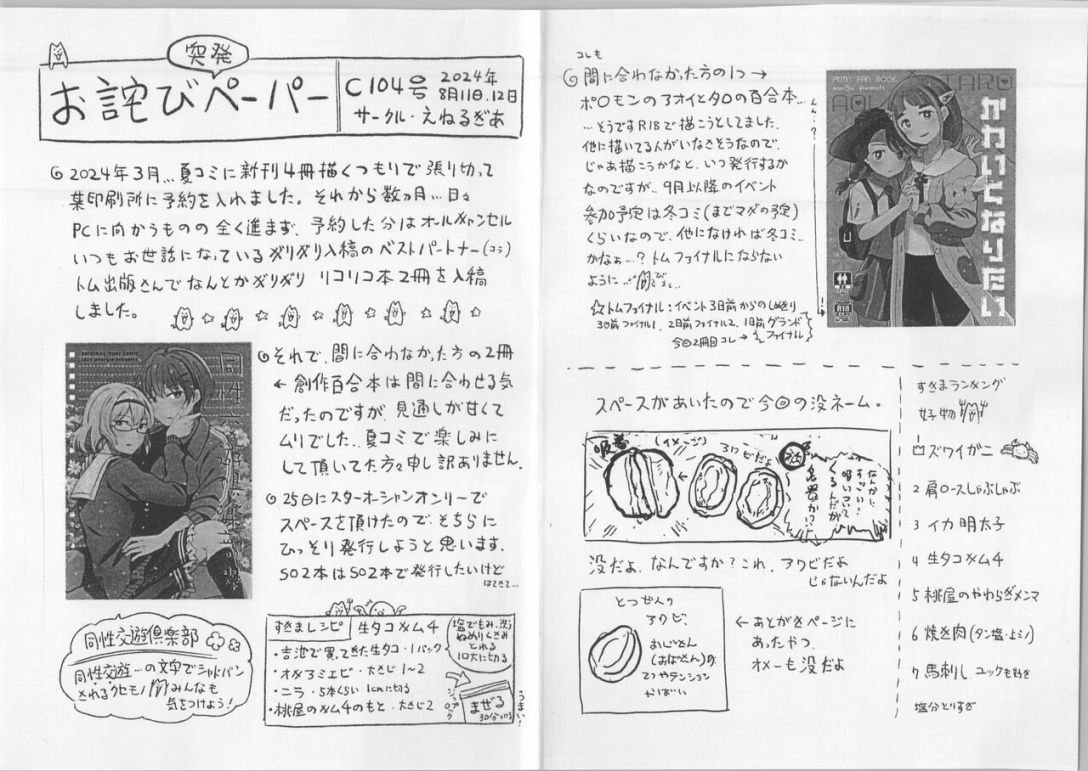 突発
お詫びペーパー
C104号 2024年
8月11日.12日
サークル・えねるぎあ
◎2024年3月…夏コミに新刊4冊描くつもりで張り切って
某印刷所に予約を入れました。それから数ヵ月…日々
PCに向かうものの全く進まず、予約した分はオールキャンセル
いつもお世話になっているギリギリ入稿のベストパートナー(コラ)
トム出版さんでなんとかギリギリ リコリコ本2冊を入稿
しました。
◎それで、間に合わなかった方の2冊
←創作百合本は間に合わせる気
だったのですが、見通しが甘くて
ムリでした、夏コミで楽しみに
して頂いてた方々申し訳ありません。
◎25日にスターオーシャンオンリーで
スペースを頂けたので、そちらに
ひっそり発行しようと思います、
SO2本はSO2本で発行したいけど
はてさて…
同性交遊倶楽部
同性交遊…の文字でシャドバン
されるクセモノ みんなも
気をつけよう!
すきまレシピ 生タコキムム4
・吉池で買ってきた生タコ・1パック
・オキアミエビ・大さじ1〜2
・ニラ・5本くらい 1cmに切る
・桃屋のキムム4のもと・大さじ2
塩でもみ、洗う
ぬめりくさみ
とれる
1口大に切る
ジップロック
まぜる
うまい!
コレも
◎間に合わなかった方の1つ→
ポ○モンのアオイとタ○の百合本…
…そうですR18で描こうとしてました、
他に描いてる人がいなさそうなので、
じゃあ描こうかなと、いつ発行するか
なのですが…9月以降のイベント
参加予定は冬コミ(までマダの予定)
くらいなので、他になければ冬コミ…
かなぁ…?トムファイナルにならない
ように…
☆トムファイナル:イベント3日前からのしめきり
3日前ファイナル1、2日前ファイナル2、1日前グランド
ファイナル
今回2冊目コレ→
かわいくなりたい
R18
スペースがあいたので今回の没ネーム。
(イメージ)
アワビだよ
なんかに
すごい!
吸いついて
くるんだが
名器か!?
没だよ、なんですか?これ、アワビだよ
じゃないんだよ
とつぜんの
アワビ、
←あとがきページに
あったやつ、
オメーも没だよ
すきまランキング
好物
1 ズワイガニ
2 肩ロースしゃぶしゃぶ
3 イカ明太子
4 生タコキムム4
5 桃屋のやわらぎメンマ
6 焼き肉(タン塩・上ミノ)
7 馬刺し、ユッケも好き
塩分とりすぎ